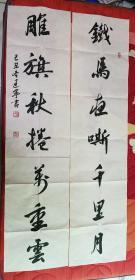 鐵馬夜嘶千里月
雕旗秋捲萬重雲
己丑李建军書